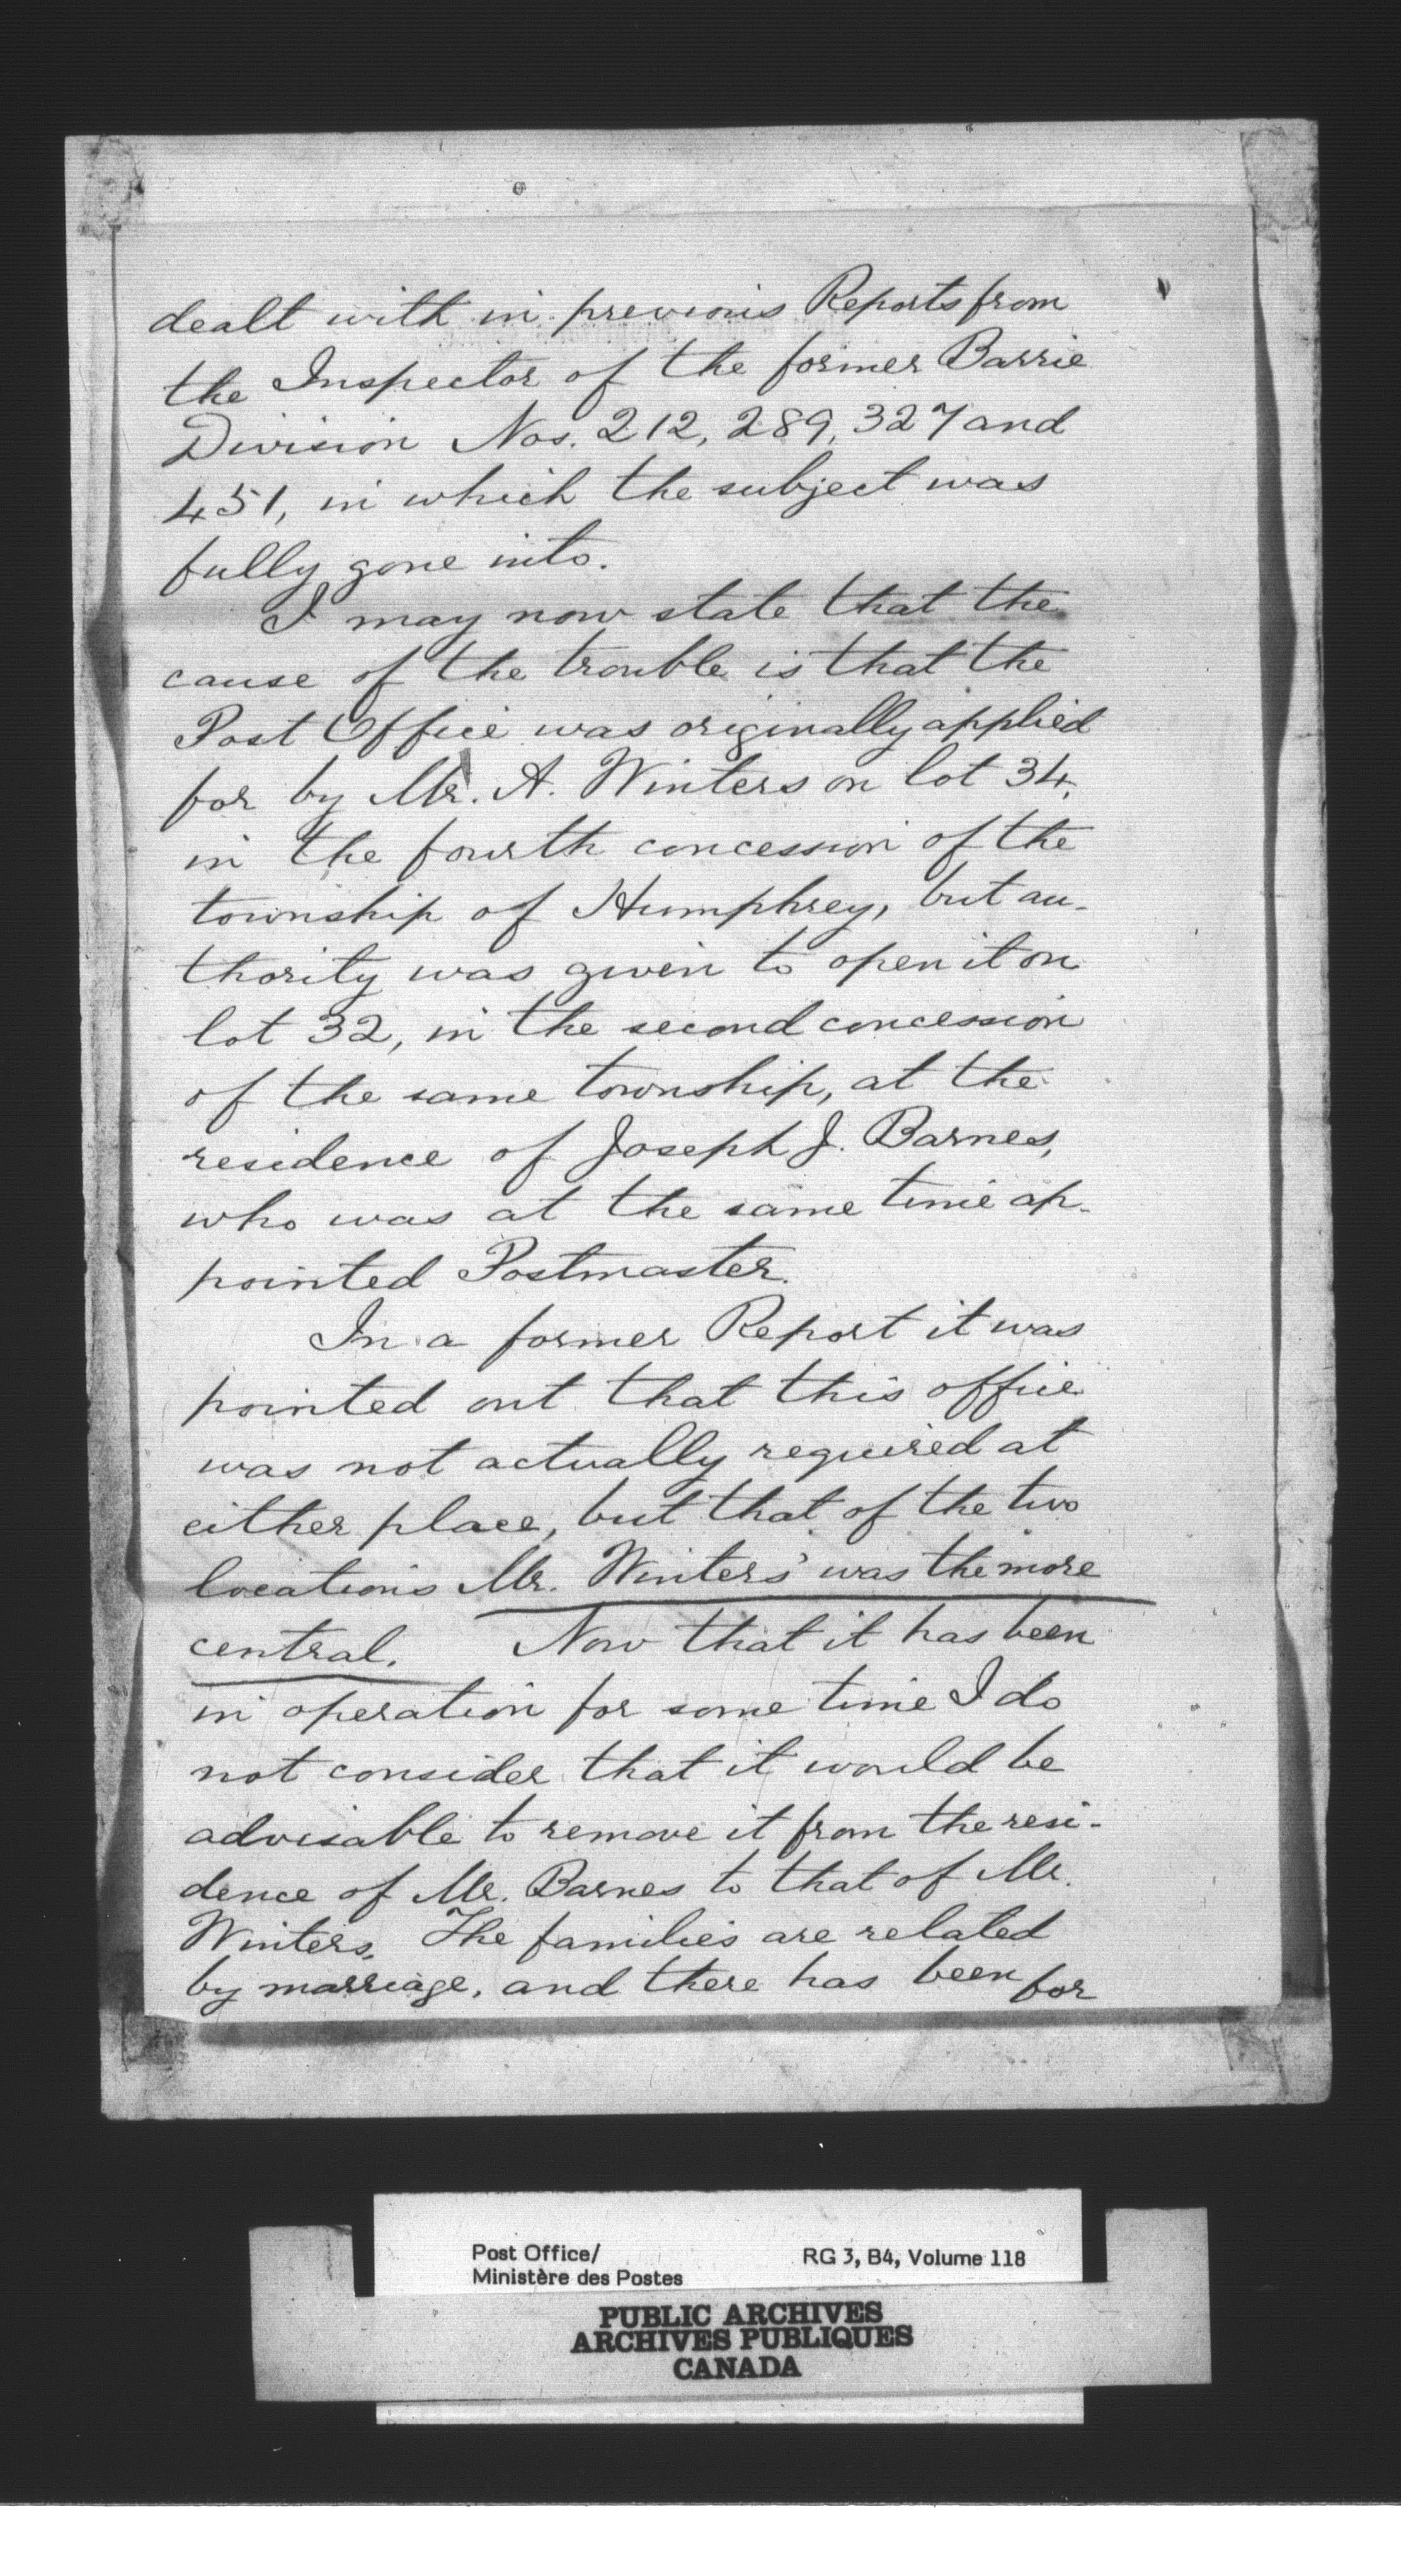 dealt with in previous Reports from
the Inspector of the former Barrie
Division Nos. 212, 289, 327 and
451, in which the subject was
fully gone into.
I may now state that the
cause of the trouble is that the
Post Office was originally applied
for by Mr. A. Winters on lot 34,
in the fourth concession of the
township of Humphrey, but au-
thority was given to open it on
lot 32, in the second concession
of the same township, at the
residence of Joseph J. Barnes,
who was at the same time ap-
pointed Postmaster.
In a former Report it was
pointed out that this office
was not actually required at
either place, but that of the two
locations Mr. Winters' was the more
central. Now that it has been
in operation for some time I do
not consider that it would be
advisable to remove it from the resi-
dence of Mr. Barnes to that of Mr.
Winters. The families are related
by marriage, and there has been for
Post Office/
Ministère des Postes
RG 3, B4, Volume 118
PUBLIC ARCHIVES
ARCHIVES PUBLIQUES
CANADA